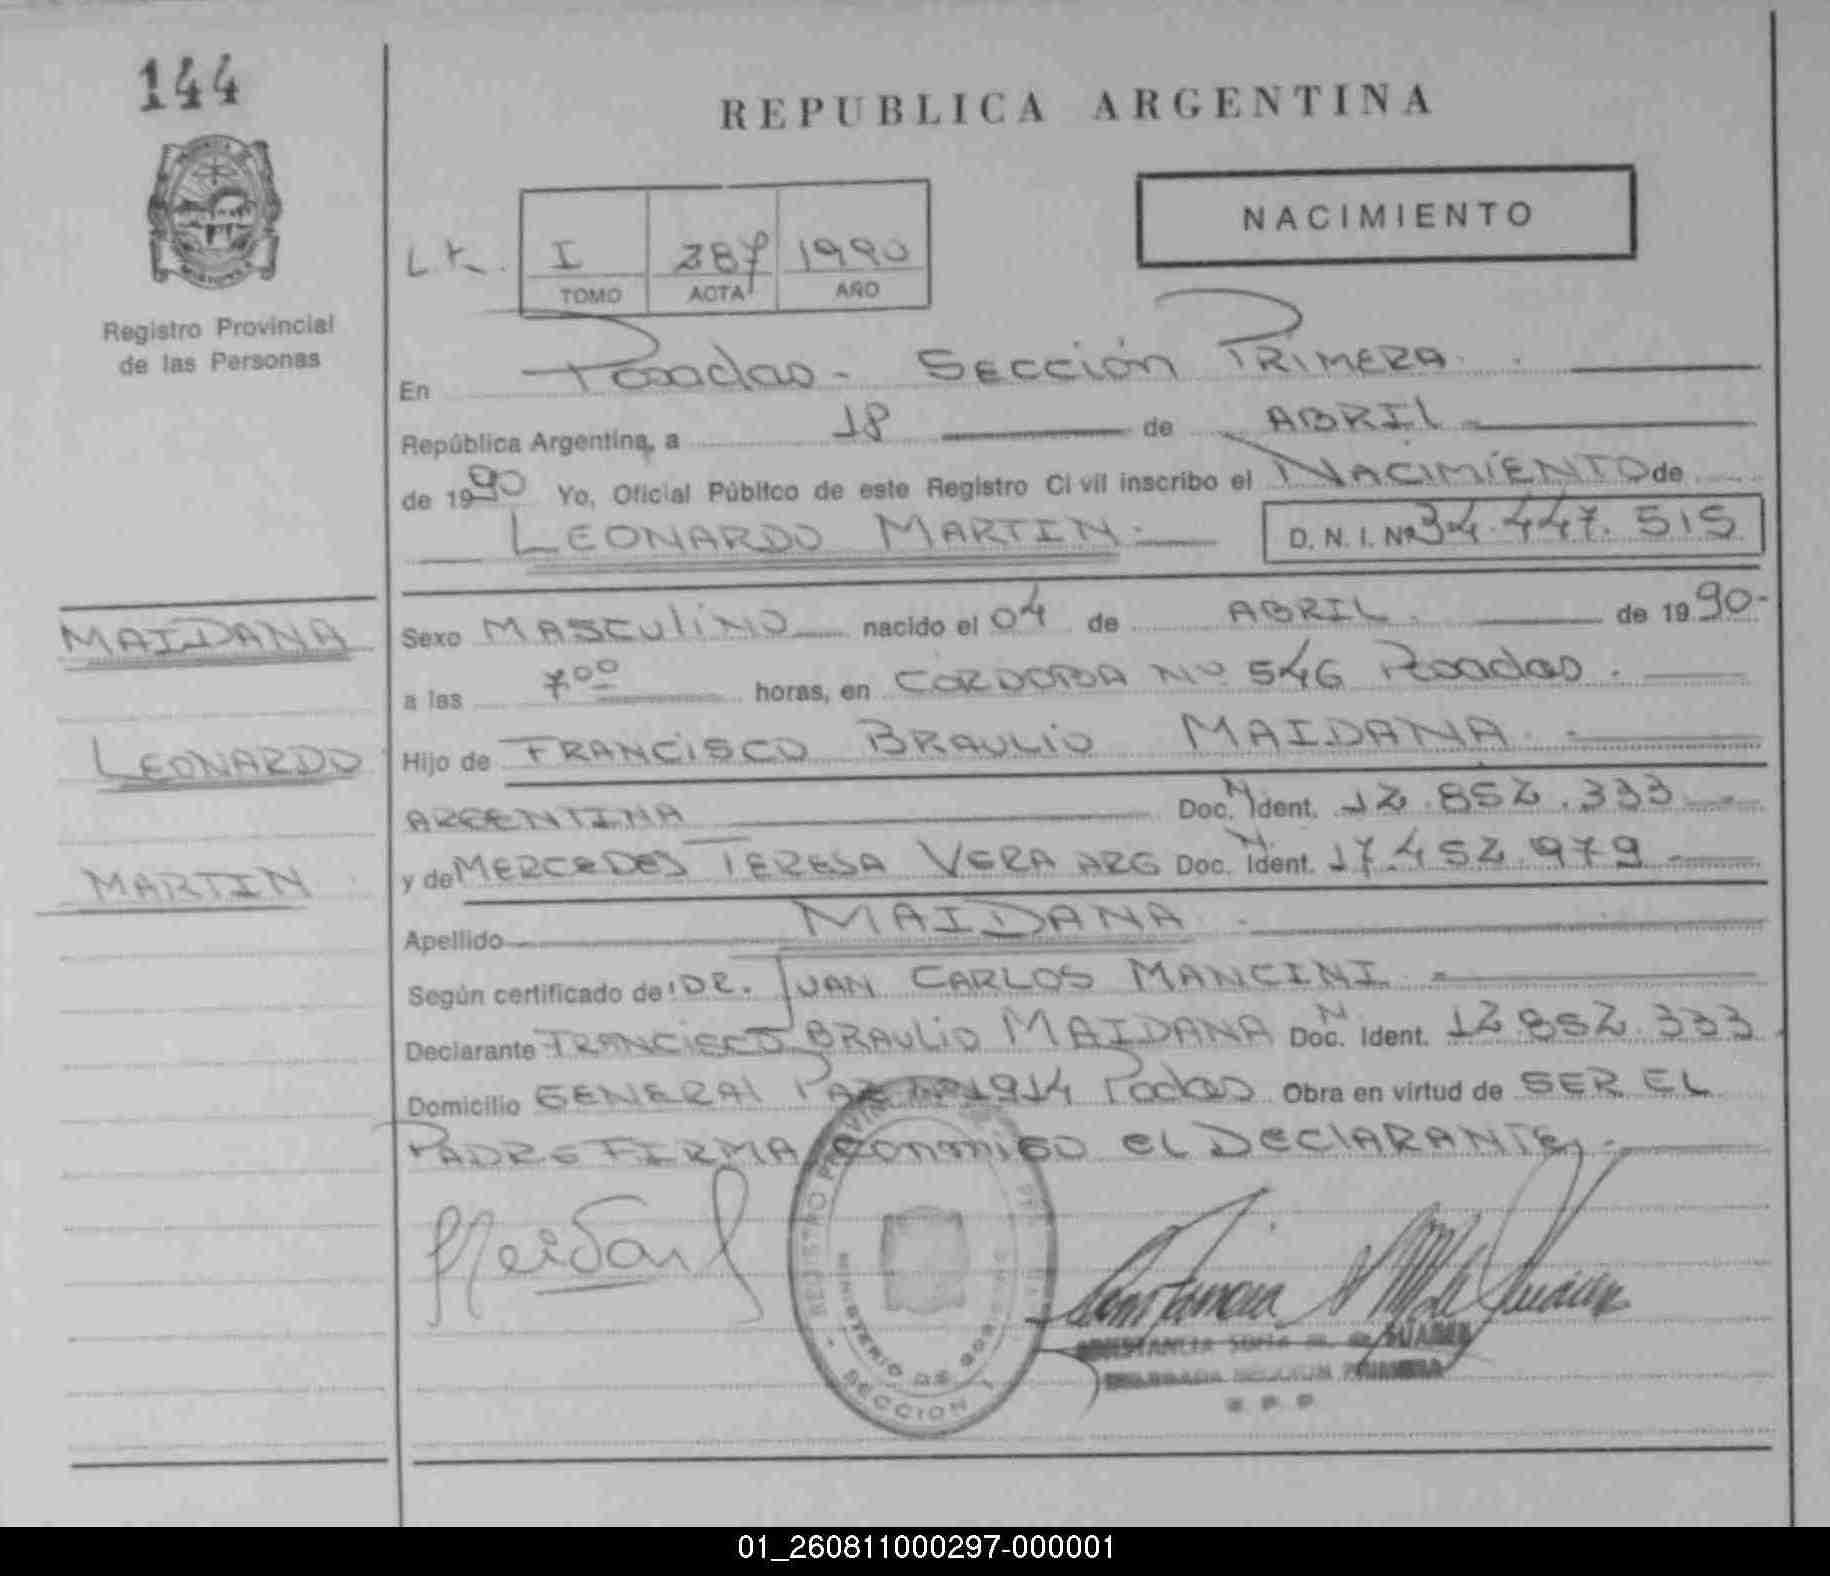 144
REPUBLICA ARGENTINA
NACIMIENTO
I 287 1990
TOMO ACTA AÑO
Registro Provincial
de las Personas
En Posadas - SECCIÓN PRIMERA
República Argentina, a 18 de ABRIL
de 1990 Yo, Oficial Público de este Registro Civil inscribo el NACIMIENTO de
LEONARDO MARTIN D. N. I. Nº 34.447.515
MAIDANA
LEONARDO
MARTIN
Sexo MASCULINO nacido el 04 de ABRIL de 1990-
a las 7⁰⁰ horas, en CORDOBA Nº 546 Posadas.
Hijo de FRANCISCO BRAULIO MAIDANA
ARGENTINA Doc. N Ident. 12.852.333
y de MERCEDES TERESA VERA ARG Doc. N Ident. 17.452.979
Apellido MAIDANA
Según certificado de: DR. JUAN CARLOS MANCINI
Declarante FRANCISCO BRAULIO MAIDANA Doc. N Ident. 12.852.333
Domicilio GENERAL PAZ Nº 1914 Podas Obra en virtud de SER EL
PADRE FIRMA CONMIGO EL DECLARANTE
REGISTRO
MINISTERIO DE GOBIERNO
SECCION 1
CONSTANCIA SOFIA M. de SUAREZ
DELEGADA SECCION PRIMERA
R. P. P.
01_260811000297-000001